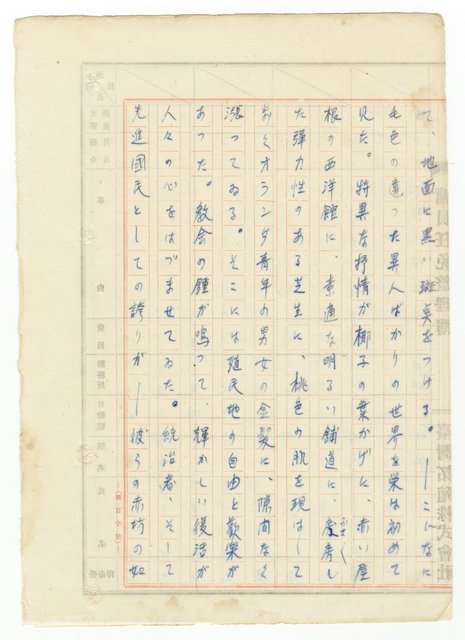 て、地面に黒い斑点をつける。――こんなに
毛色の違った異人ばかりの世界を栄は初めて
見た。特異な抒情が椰子の葉かげに、赤い屋
根の西洋館に、素適な明るい舗道に、
た弾力性のある芝生に、桃色の肌を現はして
歩くオランダ青年の男女の金髪に、隙間なく
漲ってゐる。そこには殖民地の自由と歓楽が
あった。教会の鐘が鳴って、輝かしい復活が
人々の心をはづませてゐた。統治者、そして
先進國民としての誇りが――彼らの赤坊の如